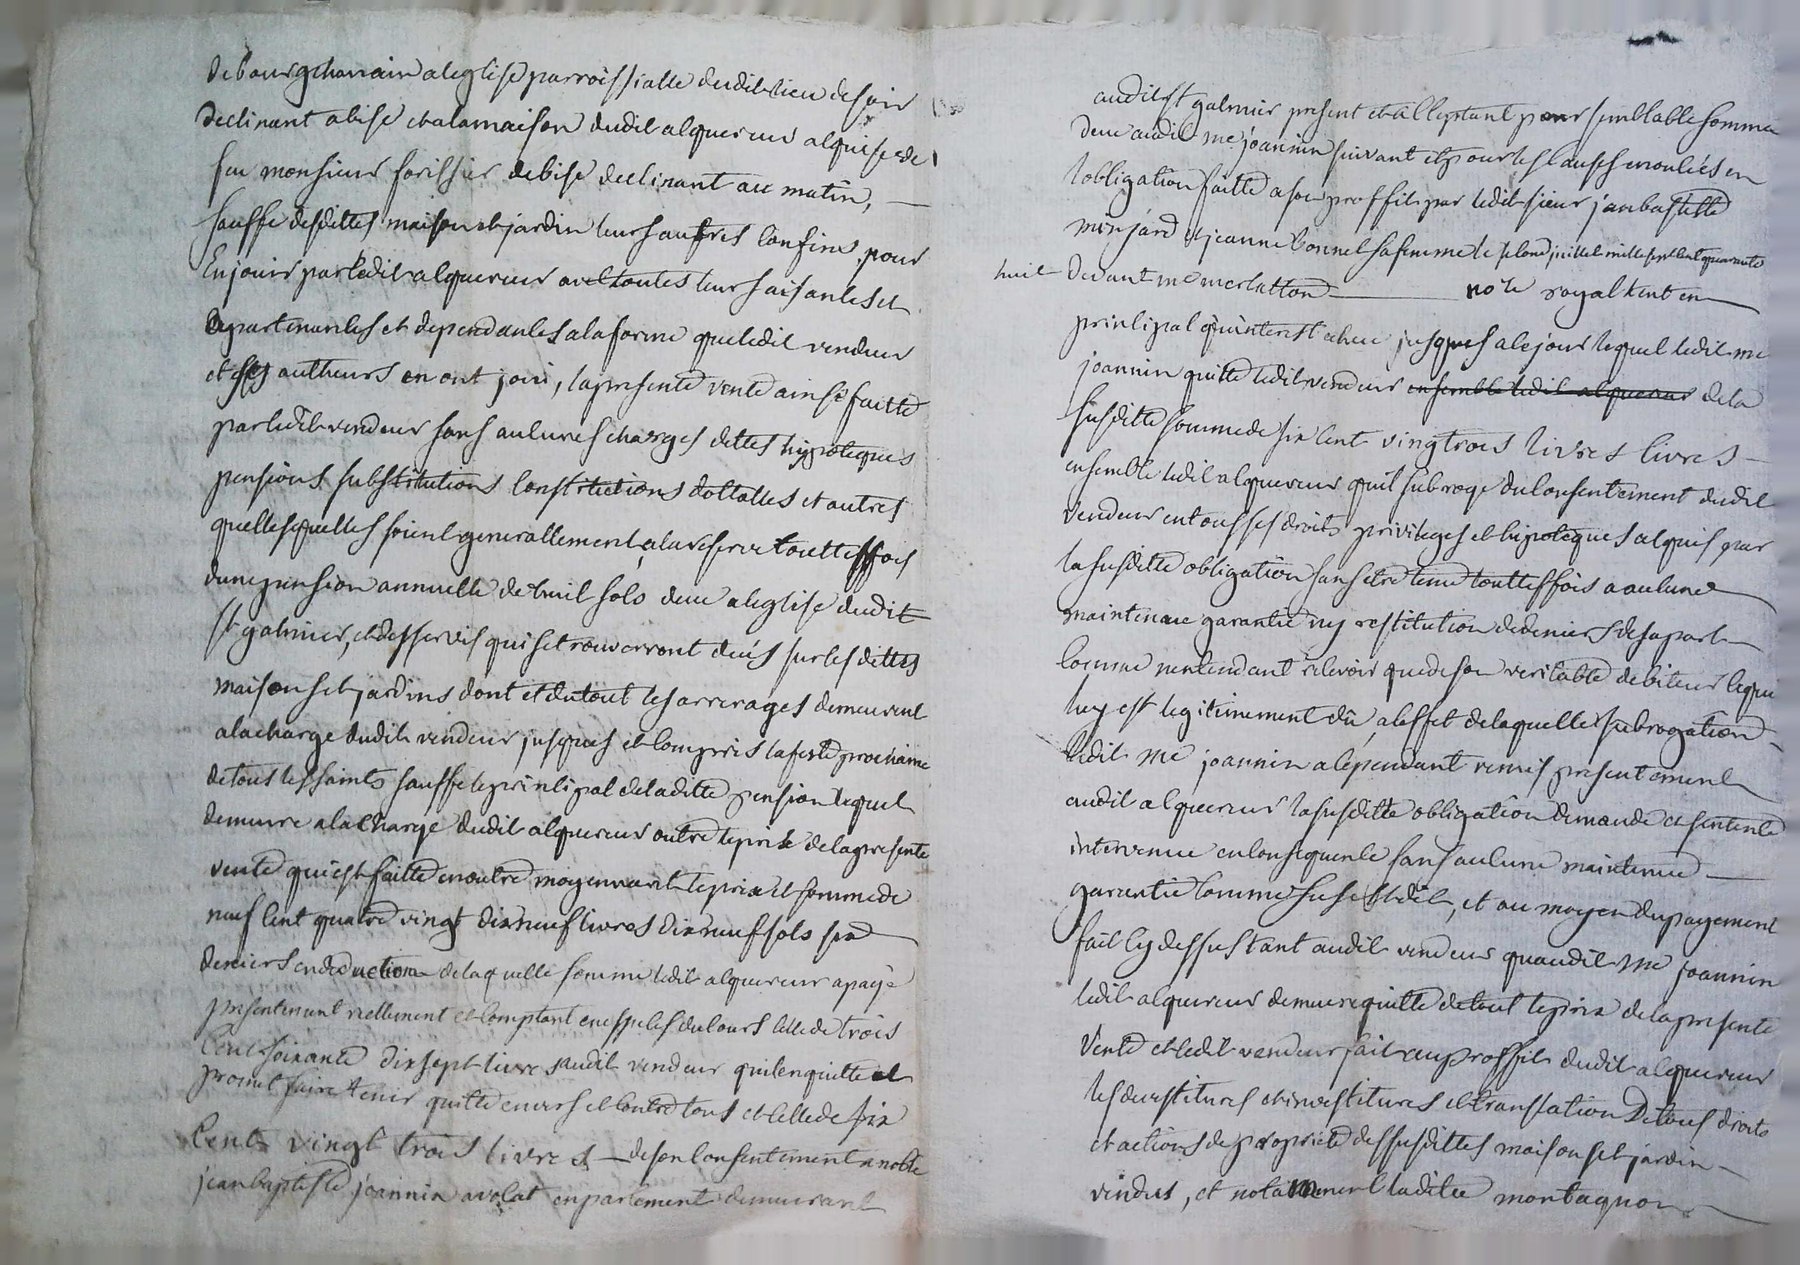 de bourgchanain a leglise parroissialle dudit lieu de soir
declinant a bise et a la maison dudit acquereur acquise de
feu monsieur forissier de bise declinant au matin, —
sauffe desdittes maison et jardin leurs autres confins, pour
En jouir par ledit acquereur avec toutes leurs aisances et
apartenances et dependances a la forme que ledit vendeur
et ses autheurs en ont joui, la presente vente ainsi faitte
par ledit vendeur sans aulcunes charges dettes hypoteques
pensions substitutions constitutions dottalles et autres
quelles quelles soient generallement, a la reserve touttesfois
dune pension annuelle de huit sols deue a leglise dudit
st galmier, et des servis qui se trouverront deues sur lesdittes
maisons et jardins dont et du tout les arrerages demeurent
a la charge dudit vendeur jusques et compris la feste prochaine
de tous les saints sauffe le principal de laditte pension lequel
demeure a la charge dudit acquereur outre le prix de la presente
vente qui est faitte en outre moyennant le prix et somme de
neuf cent quatre vingt dix neuf livres dix neuf sols six
deniers en deduction de laquelle somme ledit acquereur a payé
presentement reellement et comptant en especes du cours celle de trois
Cent soixante dix sept livres audit vendeur qui len quitte et
promet faire tenir quitte envers et contre tous et celle de six
Cents vingt trois livres — de son consentement a noble
jean baptiste joannin avocat en parlement demeurant
audit st galmier present et acceptant pour semblable somme
deue audit me joannin suivant et pour les causes enoncées en
lobligation faitte a son proffit par ledit sieur jean baptiste
minjard et jeanne bonnel sa femme le second juillet mille sept cent quarante
huit devant me merlatton — nore royal tant en
principal qu'interest echeu jusques a ce jour lequel ledit me
joannin quitte ledit vendeur ensemble ledit acquereur de la
susditte somme de six cent vingt trois livres livres —
ensemble ledit acquereur quil subroge du consentement dudit
vendeur en tous ses droits privileges et hipoteques acquis par
la susditte obligation sans etre tenu touttesfois a aulcune
maintenue garantie ny restitution de deniers de sa part
comme nentendant recevoir que de son veritable debiteur ce qui
luy est legitimement dû, a leffet de laquelle subrogation
ledit me joannin a cependant remis presentement
audit acquereur la susditte obligation demande et sentence
intervenue en consequence sans aulcune maintenue —
garantie comme susest dit, et au moyen du payement
fait cy dessus tant audit vendeur quaudit me joannin
ledit acquereur demeure quitte de tout le prix de la presente
vente et ledit vendeur fait au proffit dudit acquereur
les devestitures et investitures et translation de tous droits
et actions de proprieté des susdittes maisons et jardin —
vendus, et notamment ladite montagnon